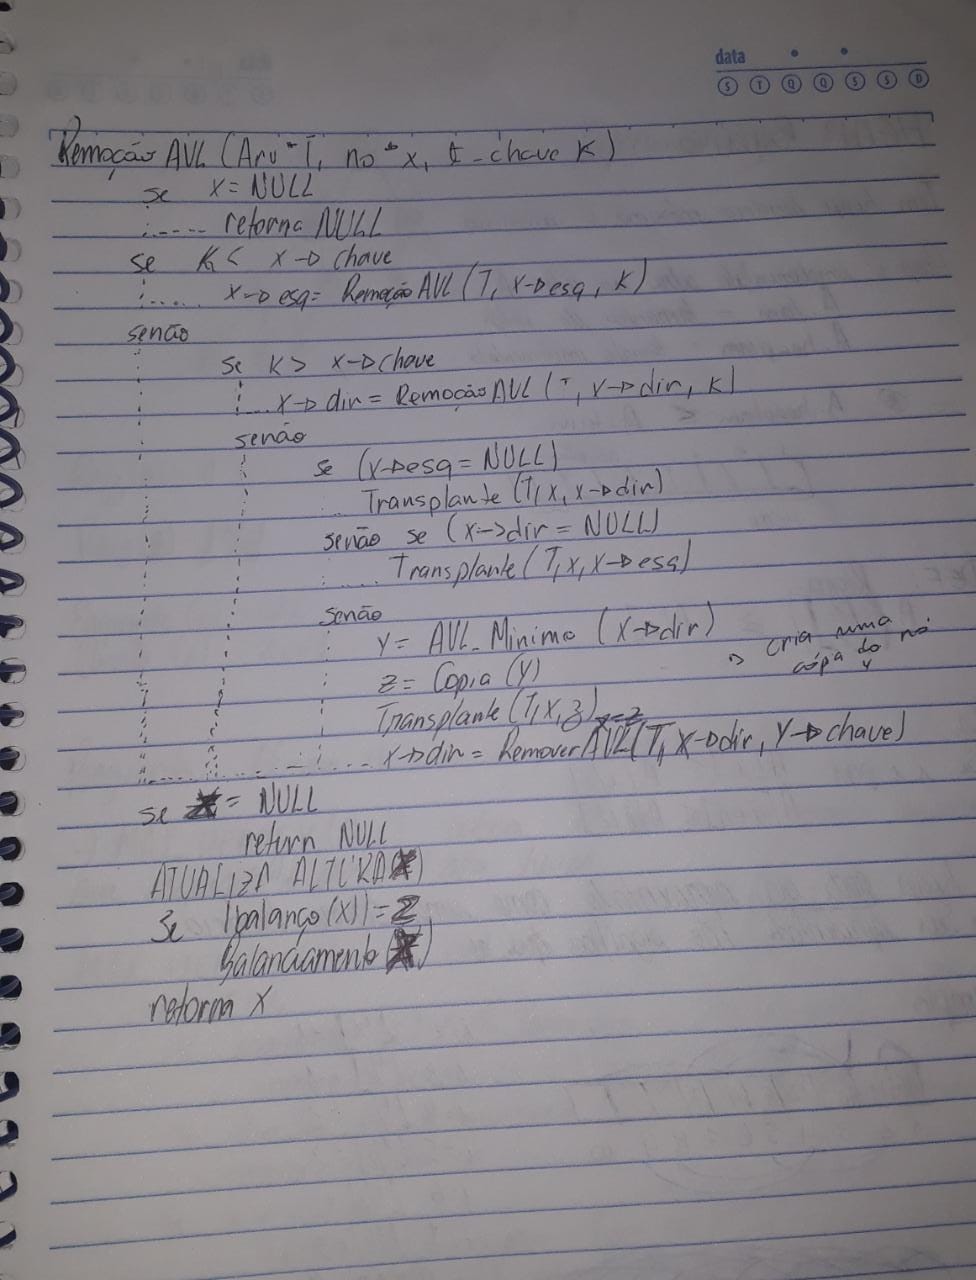 data
S T Q Q S S D
Remoção AVL (Arv *T, no *x, t_chave K)
se x = NULL
retorna NULL
se K < x→chave
x→esq = Remoção AVL (T, x→esq, K)
senão
se K > x→chave
x→dir = Remoção AVL (T, x→dir, K)
senão
se (x→esq = NULL)
Transplante (T, x, x→dir)
senão se (x→dir = NULL)
Transplante (T, x, x→esq)
senão
y = AVL_Minimo (x→dir)
z = Copia (y) → cria uma cópia do nó y
Transplante (T, x, z) x=z
x→dir = Remover AVL (T, x→dir, y→chave)
se = NULL
return NULL
ATUALIZA ALTURA( )
se |balanço(x)| = 2
Balanceamento( )
retorna x